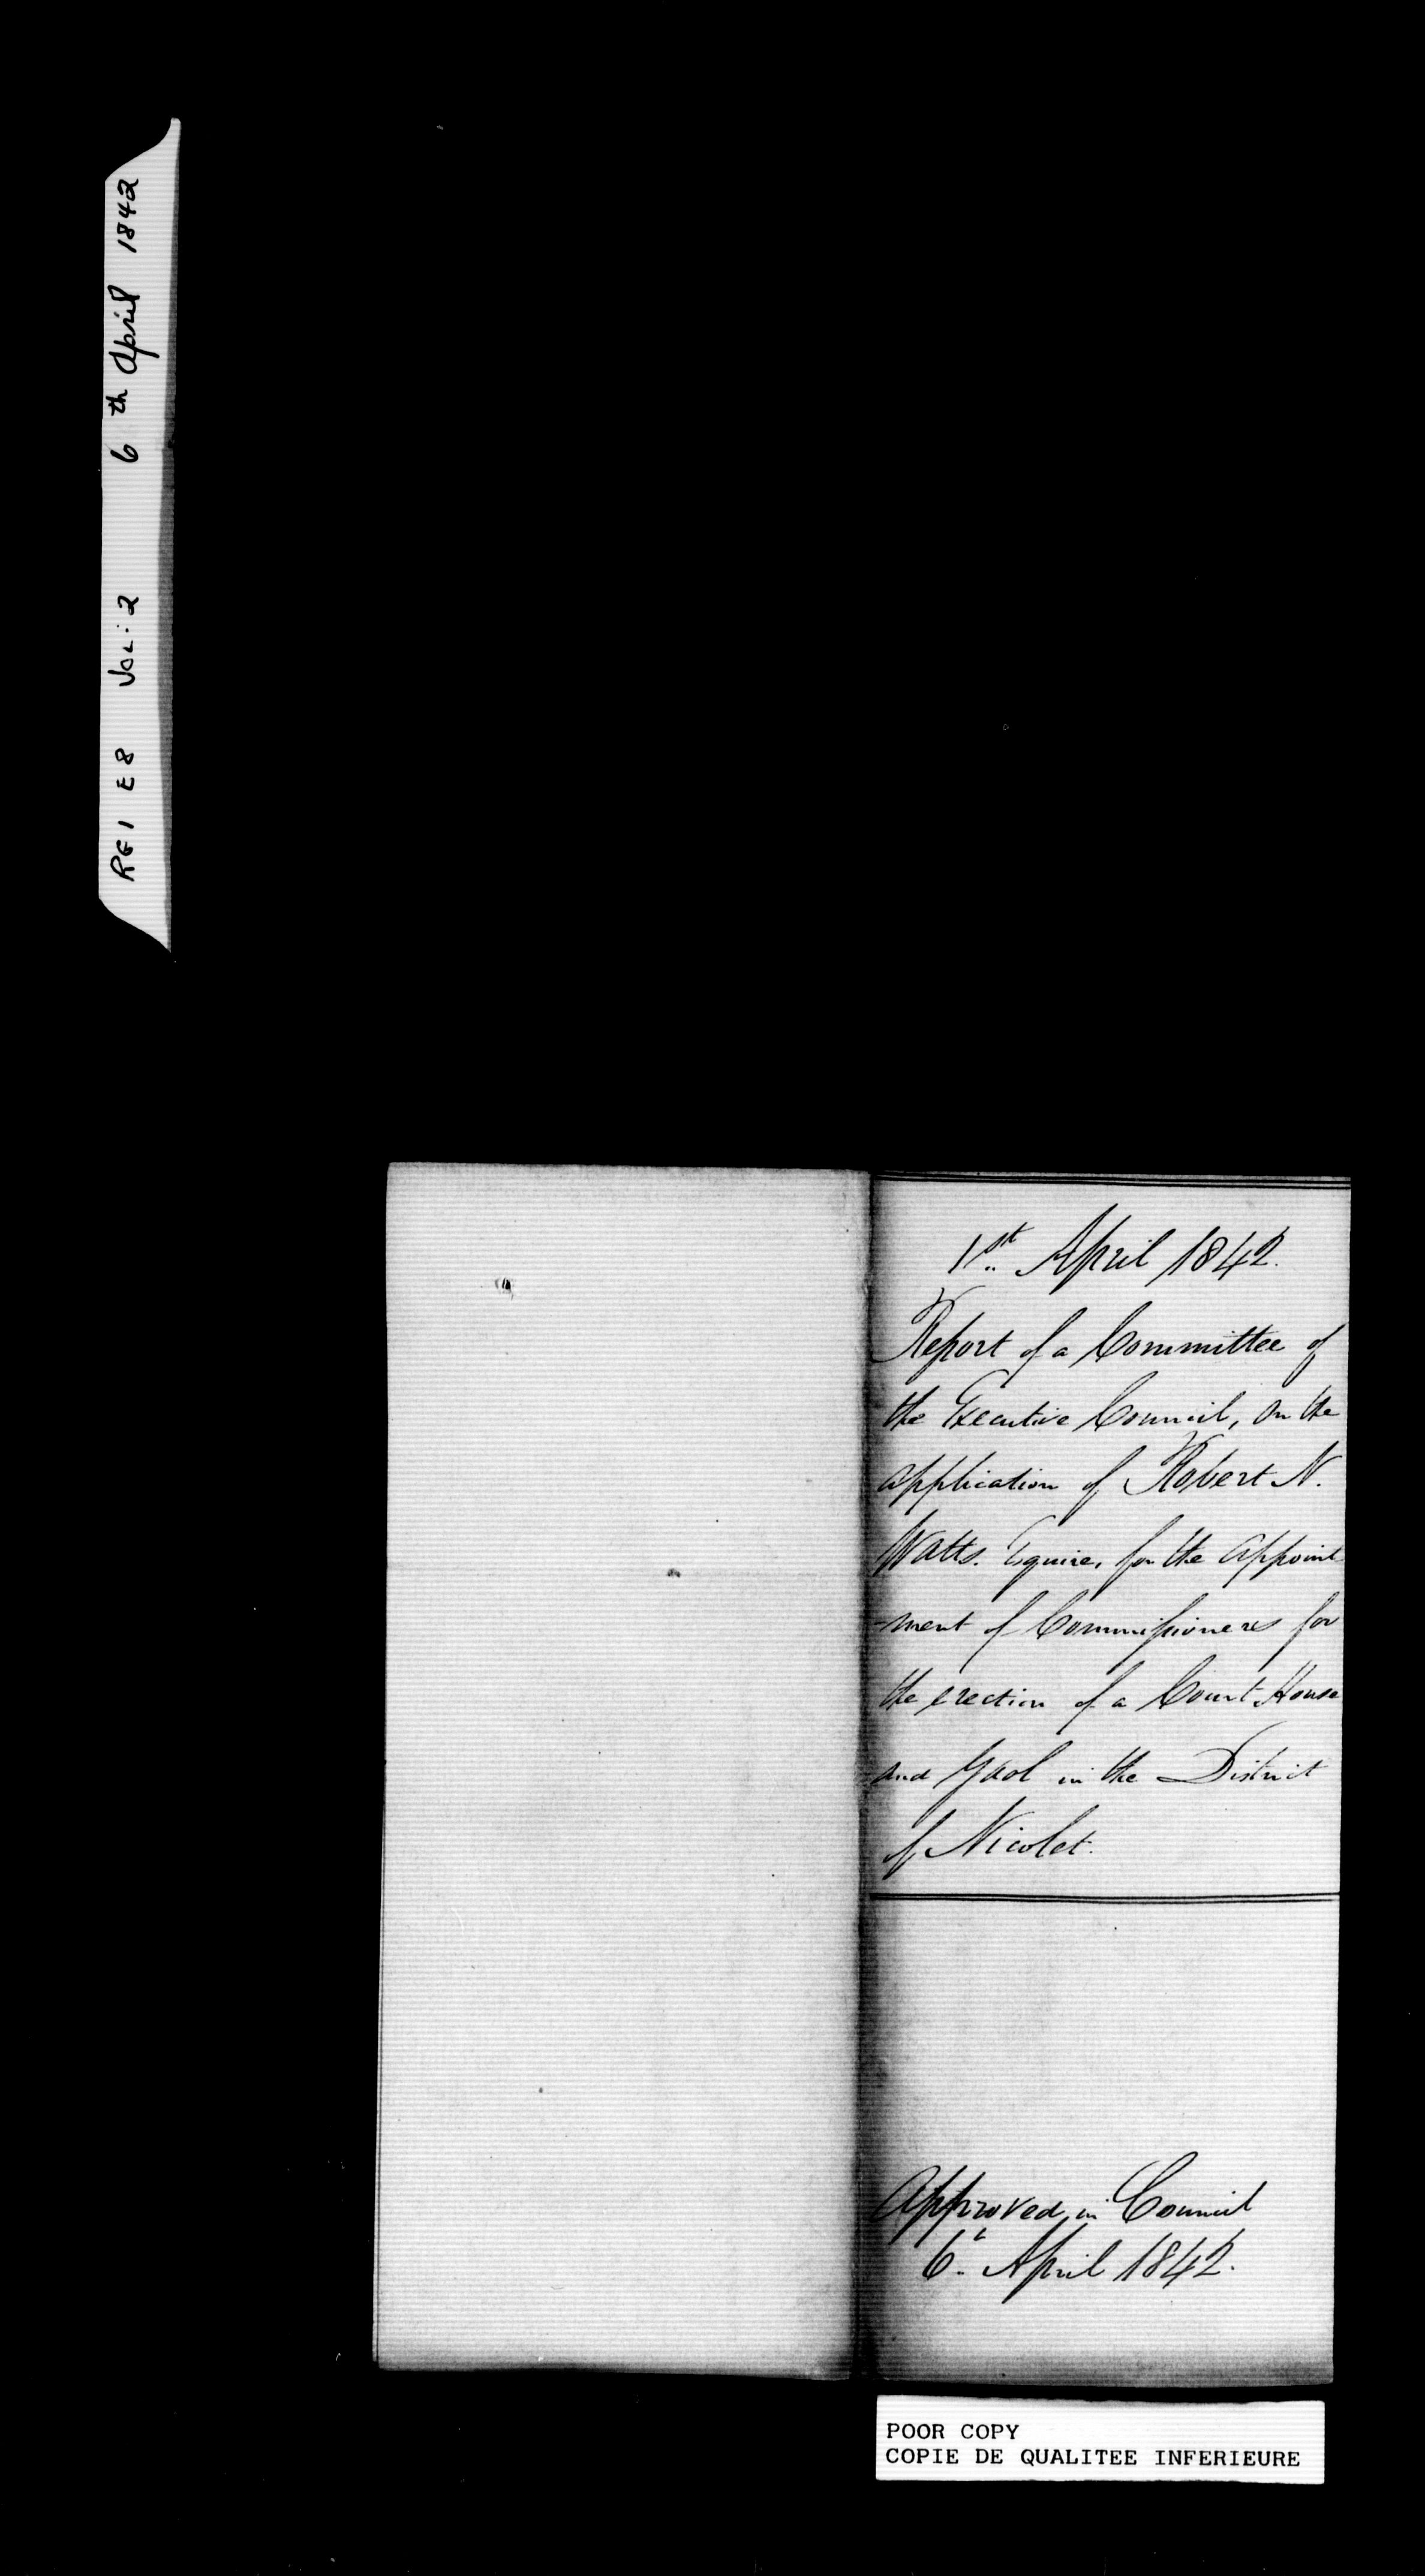 RG1 E8 VOL: 2 6th April 1842
1st April 1842.
Report of a Committee of
the Executive Council, on the
application of Robert N.
Watts. Esquire, for the appoint
-ment of Commissioners for
the erection of a Court House
and Gaol in the District
of Nicolet.
Approved in Council
6th April 1842.
POOR COPY
COPIE DE QUALITEE INFERIEURE